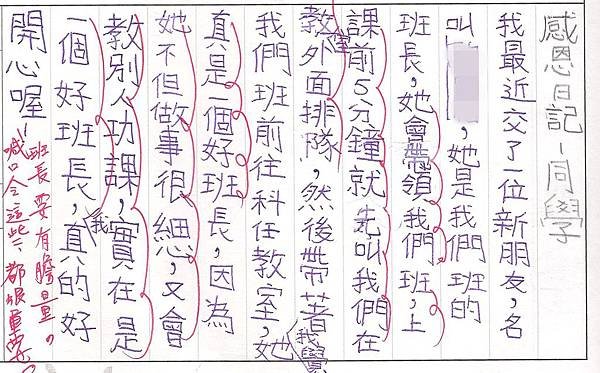 感恩日記-同學
我最近交了一位新朋友,名
叫,她是我們班的
班長,她會帶領我們班,上
課前5分鐘就先叫我們在
教室外面排隊,然後帶著
我們班前往科任教室,我覺她
真是一個好班長,因為
她不但做事很細,又會
教別人功課,實在是
一個好班長,我真的好
開心喔!
班長要有膽量。
喊口令這些,都很重要。